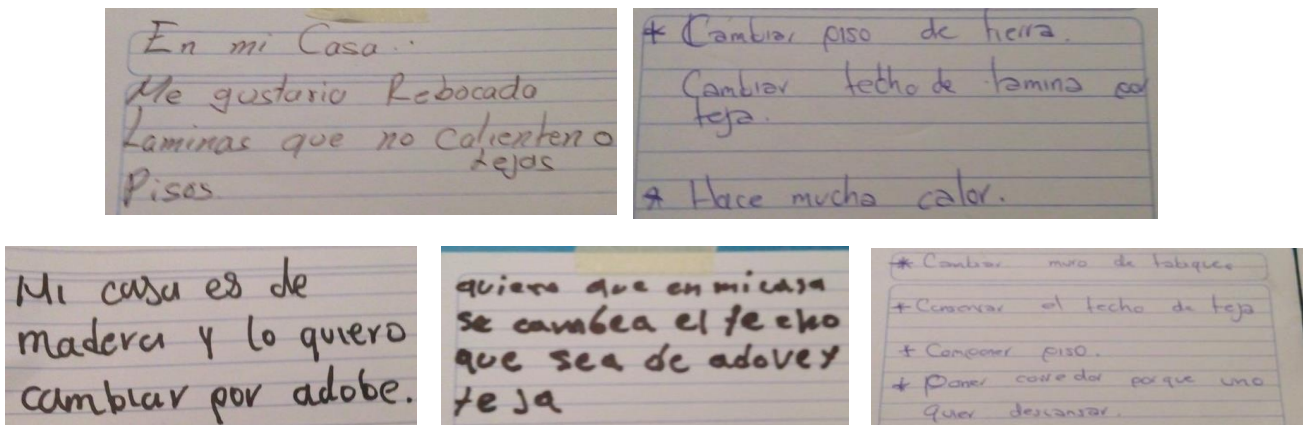 En mi Casa..
Me gustaria Rebocado
Laminas que no Calienten o
tejas
Pisos
* Cambiar piso de tierra.
Cambiar techo de lamina por
teja.
* Hace mucha calor.
Mi casa es de
madera y lo quiero
cambiar por adobe.
quiero que en mi casa
se cambea el techo
que sea de adove y
teja
* Cambiar muro de tabique.
* Conservar el techo de teja
* Componer piso.
* Poner corredor porque uno
quier descansar.